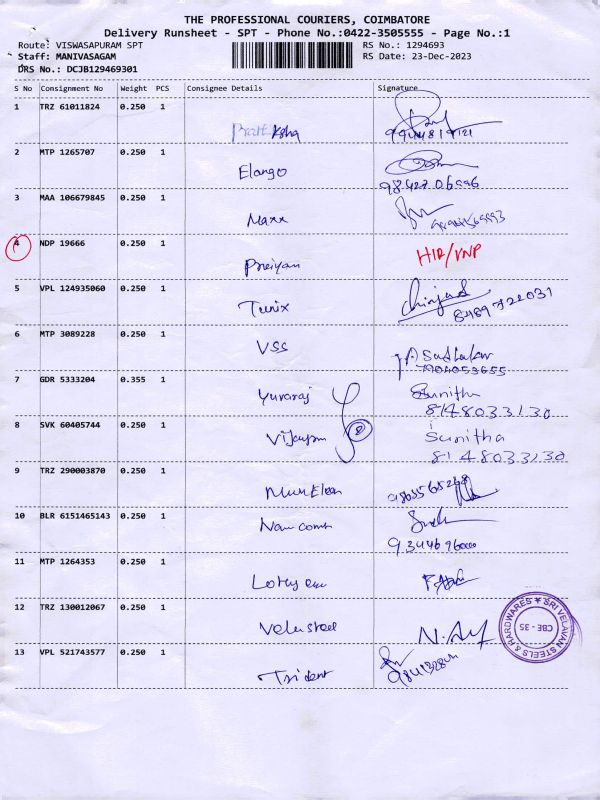 THE PROFESSIONAL COURIERS, COIMBATORE
Delivery Runsheet - SPT - Phone No.:0422-3505555 - Page No.:1
Route: VISWASAPURAM SPT RS No.: 1294693
Staff: MANIVASAGAM RS Date: 23-Dec-2023
DRS No.: DCJB129469301
S No Consignment No Weight PCS Consignee Details Signature
1 TRZ 61011824 0.250 1
2 MTP 1265707 0.250 1
Elango
3 MAA 106679845 0.250 1
Maxx
4 NDP 19666 0.250 1
HIR/VNP
5 VPL 124935060 0.250 1
Tunix
8489722031
6 MTP 3089228 0.250 1
VSS
7904053655
7 GDR 5333204 0.355 1
Yuvaraj Sunitha
8148033130
8 SVK 60405744 0.250 1
8 Sunitha
8148033130
9 TRZ 290003870 0.250 1
10 BLR 6151465143 0.250 1
11 MTP 1264353 0.250 1
12 TRZ 130012067 0.250 1
Velu steel
SRI VELAVAN STEELS & HARDWARES
CBE - 35
13 VPL 521743577 0.250 1
Trident